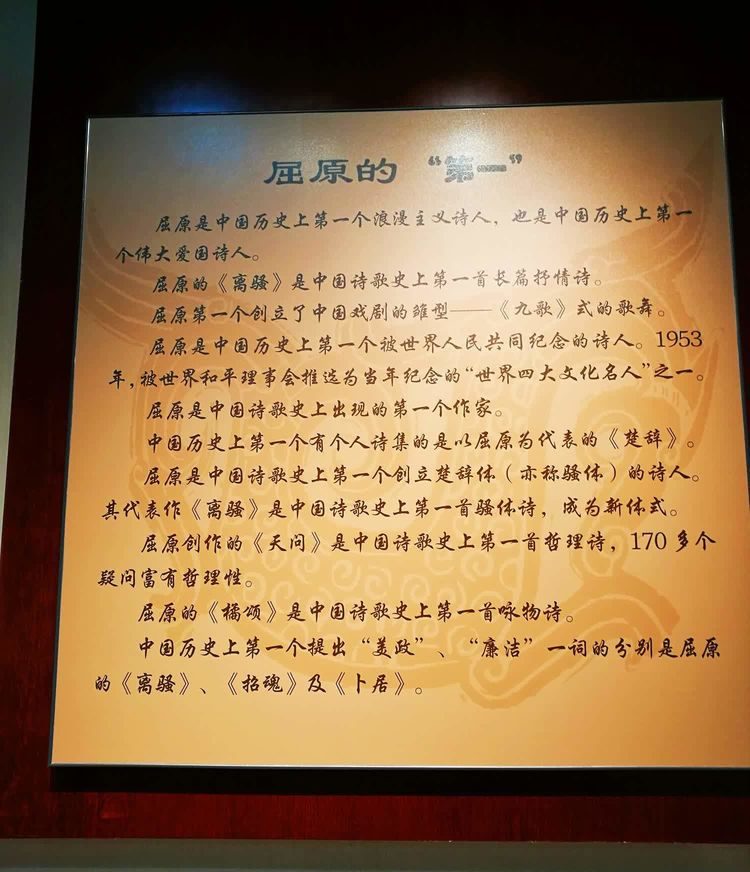 屈原的“第一”
屈原是中国历史上第一个浪漫主义诗人，也是中国历史上第一
个伟大爱国诗人。
屈原的《离骚》是中国诗歌史上第一首长篇抒情诗。
屈原第一个创立了中国戏剧的雏型——《九歌》式的歌舞。
屈原是中国历史上第一个被世界人民共同纪念的诗人。1953
年，被世界和平理事会推选为当年纪念的“世界四大文化名人”之一。
屈原是中国诗歌史上出现的第一个作家。
中国历史上第一个有个人诗集的是以屈原为代表的《楚辞》。
屈原是中国诗歌史上第一个创立楚辞体（亦称骚体）的诗人。
其代表作《离骚》是中国诗歌史上第一首骚体诗，成为新体式。
屈原创作的《天问》是中国诗歌史上第一首哲理诗，170 多个
疑问富有哲理性。
屈原的《橘颂》是中国诗歌史上第一首咏物诗。
中国历史上第一个提出“美政”、“廉洁”一词的分别是屈原
的《离骚》、《招魂》及《卜居》。